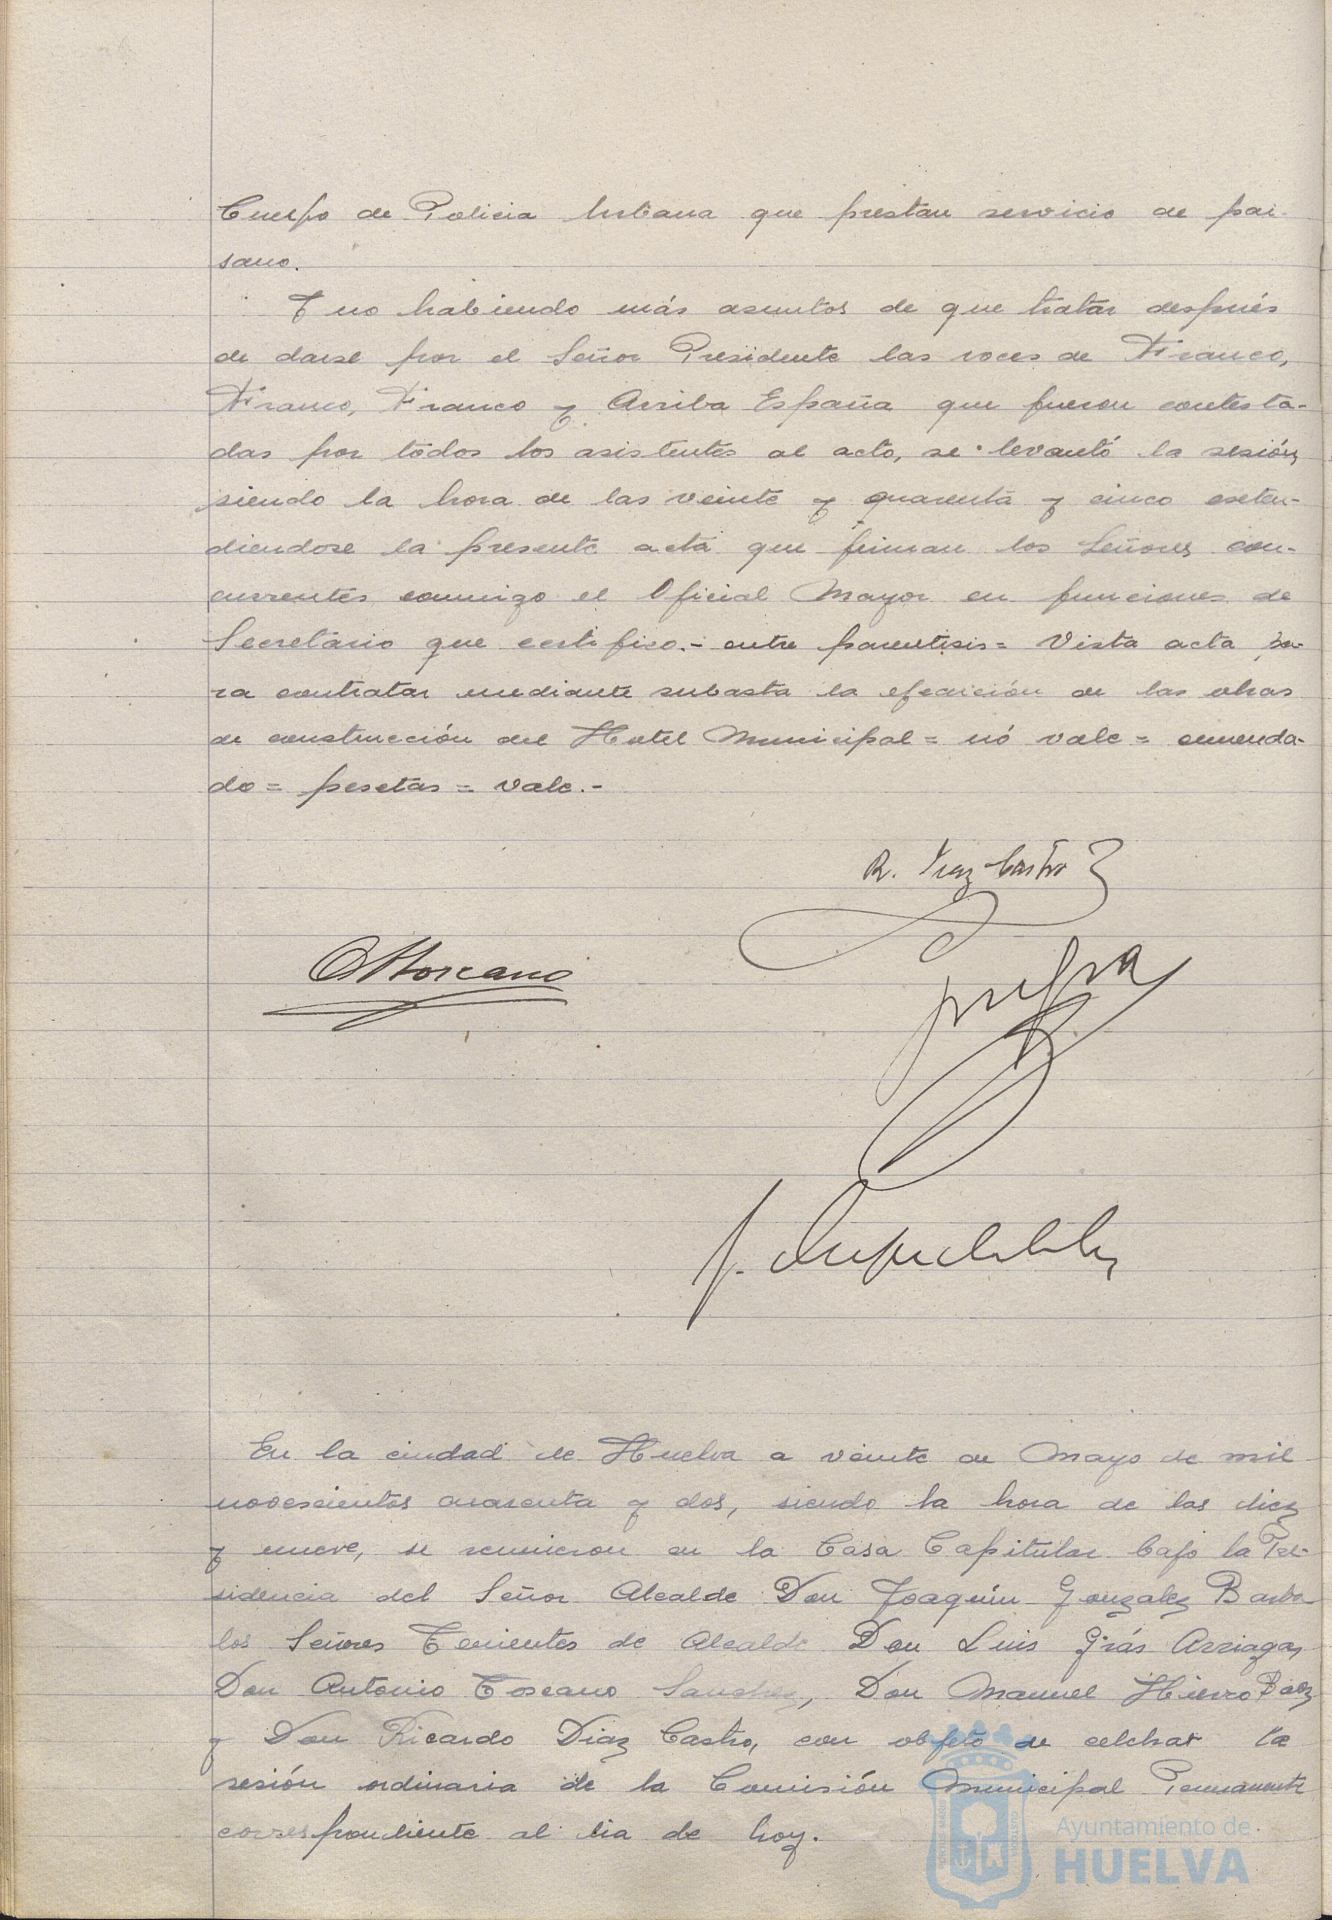 Cuerpo de Policia Urbana que prestan servicio de pai-
sano.
Y no habiendo más asuntos de que tratar después
de darse por el Señor Presidente las voces de Franco,
Franco, Franco y Arriba España que fueron contesta-
das por todos los asistentes al acto, se levantó la sesión
siendo la hora de las veinte y quarenta y cinco exten-
diendose la presente acta que firman los Señores con-
currentes conmigo el Oficial Mayor en funciones de
Secretario que certifico.- entre parentisis = Vista acta pa-
ra contratar mediante subasta la ejecición de las obras
de construcción del Hotel Municipal = nó vale = enmenda-
do = pesetas = vale.-
R. Diaz Castro
A Toscano
En la ciudad de Huelva a veinte de Mayo de mil
novescientos cuarenta y dos, siendo la hora de las diez
y nueve, se reunieron en la Casa Capitular bajo la Pre-
sidencia del Señor Alcalde Don Joaquín Gonzalez Barba
los Señores Tenientes de Alcalde Don Luis Grás Arriaga,
Don Antonio Toscano Sanchez, Don Manuel Hierro Báez
y Don Ricardo Diaz Castro, con objeto de celebrar la
sesión ordinaria de la Comisión Municipal Permanente
correspondiente al dia de hoy.
Ayuntamiento de
HUELVA